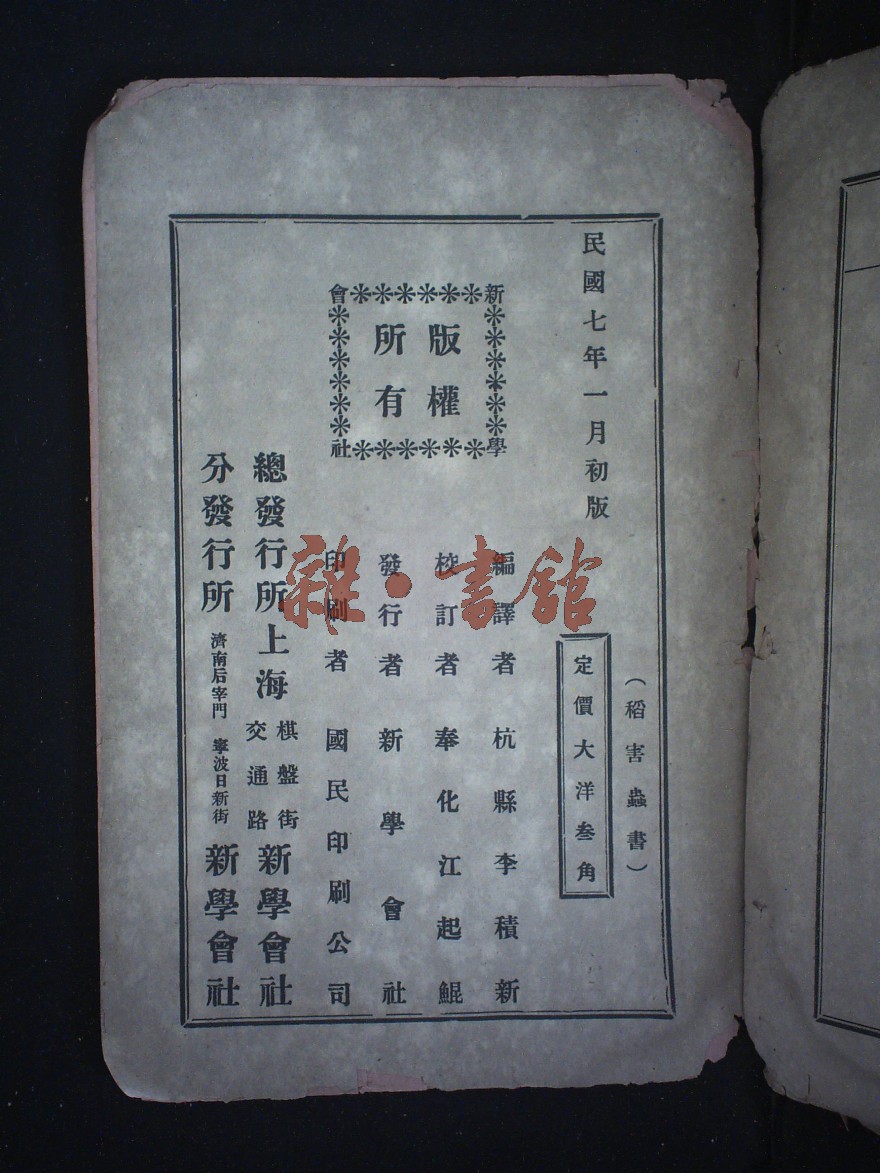 民國七年一月初版
（稻害蟲書）
定價大洋叁角
新學會社
版權
所有
編譯者杭縣李積新
校訂者奉化江起鯤
發行者新學會社
印刷者國民印刷公司
總發行所上海棋盤街交通路新學會社
分發行所濟南后宰門寧波日新街新學會社
雜·書館